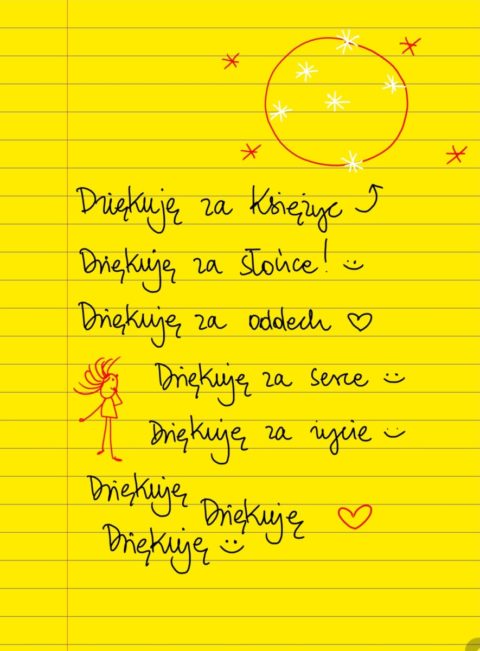 Dziękuję za Księżyc
Dziękuję za słońce!
Dziękuję za oddech
Dziękuję za serce
Dziękuję za życie
Dziękuję
Dziękuję
Dziękuję